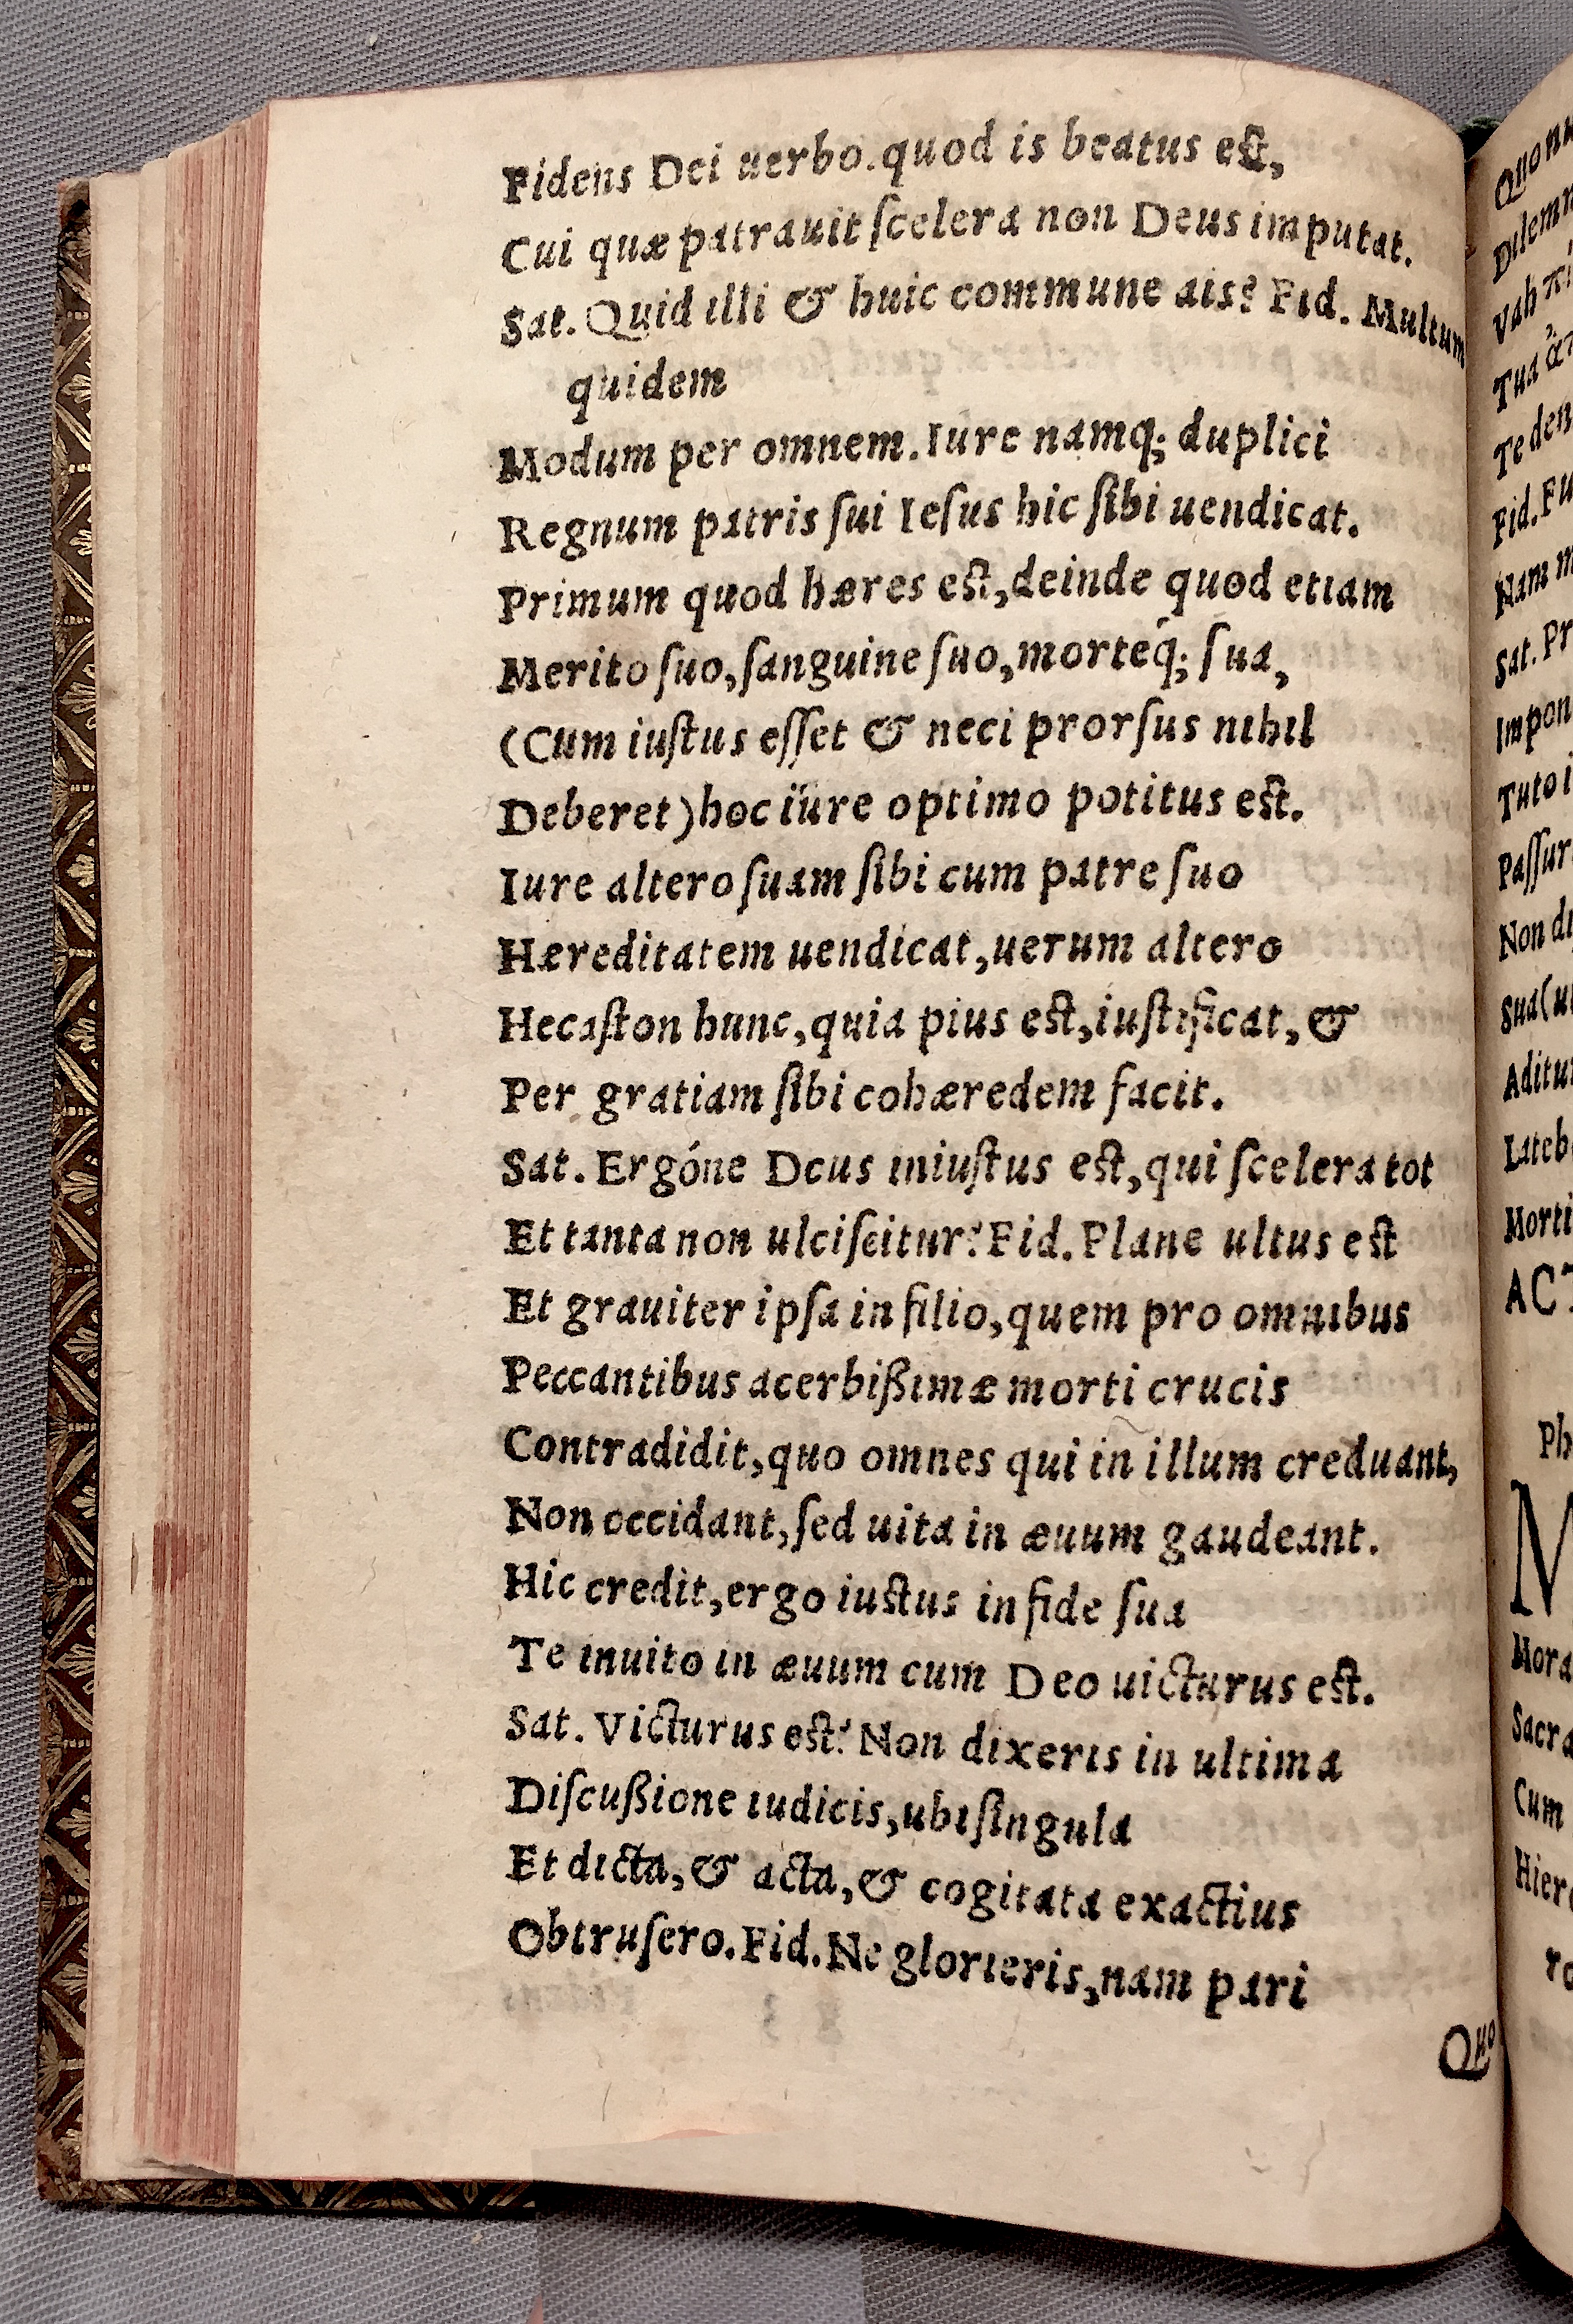 Fidens Dei uerbo.quod is beatus est,
Cui quæ patrauit ſcelera non Deus imputat.
Sat. Quid illi & huic commune ais? Fid. Multum
quidem
Modum per omnem. Iure namq; duplici
Regnum patris ſui Ieſus hic ſibi uendicat.
Primum quod hæres est, deinde quod etiam
Merito ſuo, ſanguine ſuo, morteq́; ſua,
(Cum iuſtus eſſet & neci prorſus nihil
Deberet) hoc iure optimo potitus est.
Iure altero ſuam ſibi cum patre ſuo
Hæreditatem uendicat, uerum altero
Hecaſton hunc, quia pius est, iuſtificat, &
Per gratiam ſibi cohæredem facit.
Sat. Ergóne Deus iniuſtus est, qui ſcelera tot
Et tanta non ulciſcitur? Fid. Plane ultus est
Et grauiter ipſa in filio, quem pro omnibus
Peccantibus acerbißimæ morti crucis
Contradidit, quo omnes qui in illum creduant,
Non occidant, ſed uita in æuum gaudeant.
Hic credit, ergo iustus in fide ſua
Te inuito in æuum cum Deo uicturus est.
Sat. Victurus est? Non dixeris in ultima
Diſcußione iudicis, ubi ſingula
Et dicta, & acta, & cogitata exactius
Obtruſero. Fid. Ne glorieris, nam pari
Quo
Dilem
Vah
Tua
Te den
Fid. Fu
Nam m
Sat. Pr
Impon
Tuto i
Paſſur
Non di
Sua (u
Aditu
Lateb
Morti
ACT
Ph
M
Mora
Sacra
Cum
Hier
Quo